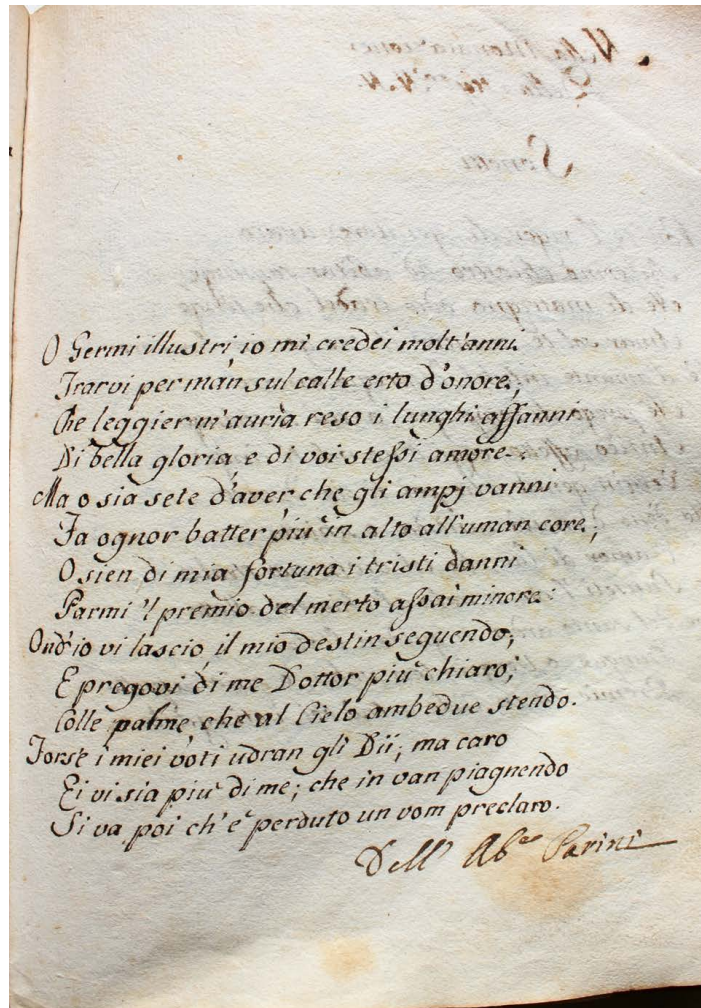 O Germi illustri, io mi credei molt'anni
Trarvi per man sul calle erto d'onore;
Che leggier m'auria reso i lunghi affanni
Di bella gloria e di voi stessi amore.
Ma o sia sete d'aver che gli ampj vanni
Fa ognor batter più in alto all'uman core;
O sien di mia fortuna i tristi danni
Parmi 'l premio del merto assai minore:
Ond'io vi lascio il mio destin seguendo;
E pregovi di me Dottor più chiaro;
Colle palme, che al Cielo ambedue stendo.
Forse i miei voti udran gli Dii; ma caro
Ei vi sia più di me; che in van piagnendo
Si va poi ch'è perduto un vom preclaro.
Dell' Ab.e Parini